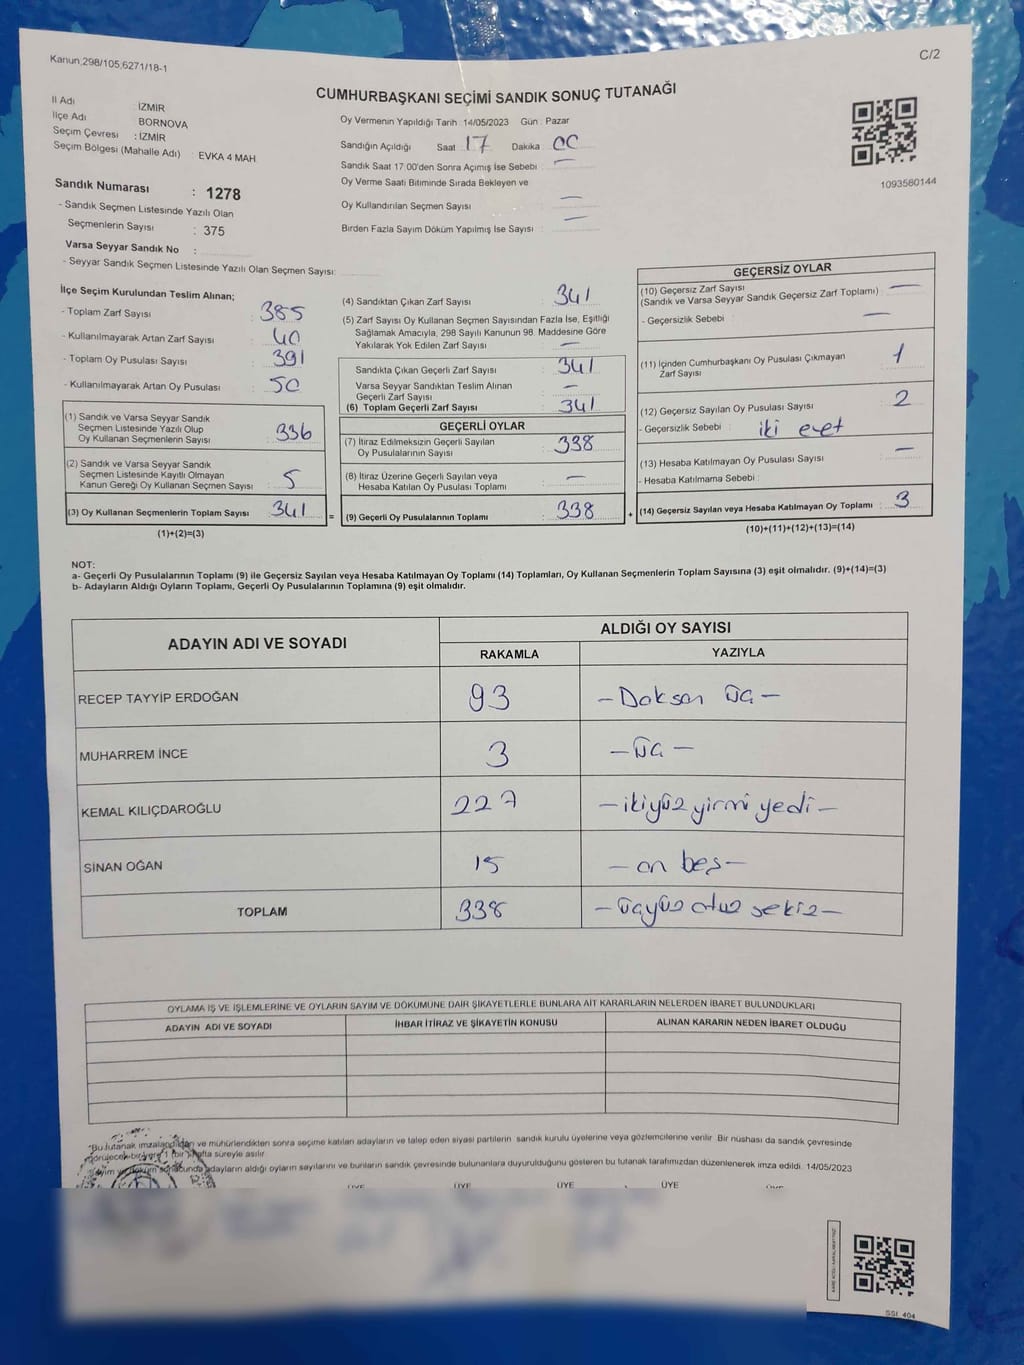 Kanun,298/105,6271/18-1
C/2
CUMHURBAŞKANI SEÇİMİ SANDIK SONUÇ TUTANAĞI
İl Adı : İZMİR
İlçe Adı : BORNOVA
Seçim Çevresi : İZMİR
Seçim Bölgesi (Mahalle Adı) : EVKA 4 MAH
Oy Vermenin Yapıldığı Tarih : 14/05/2023 Gün : Pazar
Sandığın Açıldığı Saat : 17 Dakika : 00
Sandık Saat 17:00'den Sonra Açmış İse Sebebi : —
Oy Verme Saati Bitiminde Sırada Bekleyen ve
Oy Kullandırılan Seçmen Sayısı : —
Birden Fazla Sayım Döküm Yapılmış İse Sayısı : —
1093560144
Sandık Numarası : 1278
- Sandık Seçmen Listesinde Yazılı Olan
Seçmenlerin Sayısı : 375
Varsa Seyyar Sandık No :
- Seyyar Sandık Seçmen Listesinde Yazılı Olan Seçmen Sayısı:
İlçe Seçim Kurulundan Teslim Alınan;
- Toplam Zarf Sayısı : 385
- Kullanılmayarak Artan Zarf Sayısı : 40
- Toplam Oy Pusulası Sayısı : 391
- Kullanılmayarak Artan Oy Pusulası : 50
(1) Sandık ve Varsa Seyyar Sandık
Seçmen Listesinde Yazılı Olup
Oy Kullanan Seçmenlerin Sayısı : 336
(2) Sandık ve Varsa Seyyar Sandık
Seçmen Listesinde Kayıtlı Olmayan
Kanun Gereği Oy Kullanan Seçmen Sayısı : 5
(3) Oy Kullanan Seçmenlerin Toplam Sayısı : 341
(1)+(2)=(3)
(4) Sandıktan Çıkan Zarf Sayısı : 341
(5) Zarf Sayısı Oy Kullanan Seçmen Sayısından Fazla İse, Eşitliği
Sağlamak Amacıyla, 298 Sayılı Kanunun 98. Maddesine Göre
Yakılarak Yok Edilen Zarf Sayısı : —
Sandıkta Çıkan Geçerli Zarf Sayısı : 341
Varsa Seyyar Sandıktan Teslim Alınan
Geçerli Zarf Sayısı : —
(6) Toplam Geçerli Zarf Sayısı : 341
GEÇERLİ OYLAR
(7) İtiraz Edilmeksizin Geçerli Sayılan
Oy Pusulalarının Sayısı : 338
(8) İtiraz Üzerine Geçerli Sayılan veya
Hesaba Katılan Oy Pusulası Toplamı : —
= (9) Geçerli Oy Pusulalarının Toplamı : 338
GEÇERSİZ OYLAR
(10) Geçersiz Zarf Sayısı
(Sandık ve Varsa Seyyar Sandık Geçersiz Zarf Toplamı) : —
- Geçersizlik Sebebi : —
(11) İçinden Cumhurbaşkanı Oy Pusulası Çıkmayan
Zarf Sayısı : 1
(12) Geçersiz Sayılan Oy Pusulası Sayısı : 2
- Geçersizlik Sebebi : iki evet
(13) Hesaba Katılmayan Oy Pusulası Sayısı : —
- Hesaba Katılmama Sebebi :
+ (14) Geçersiz Sayılan veya Hesaba Katılmayan Oy Toplamı : 3
(10)+(11)+(12)+(13)=(14)
NOT:
a- Geçerli Oy Pusulalarının Toplamı (9) ile Geçersiz Sayılan veya Hesaba Katılmayan Oy Toplamı (14) Toplamları, Oy Kullanan Seçmenlerin Toplam Sayısına (3) eşit olmalıdır. (9)+(14)=(3)
b- Adayların Aldığı Oyların Toplamı, Geçerli Oy Pusulalarının Toplamına (9) eşit olmalıdır.
ADAYIN ADI VE SOYADI ALDIĞI OY SAYISI
RAKAMLA YAZIYLA
RECEP TAYYİP ERDOĞAN 93 — Doksan üç —
MUHARREM İNCE 3 — üç —
KEMAL KILIÇDAROĞLU 227 — ikiyüz yirmi yedi —
SİNAN OĞAN 15 — on beş —
TOPLAM 338 — üçyüz otuz sekiz —
OYLAMA İŞ VE İŞLEMLERİNE VE OYLARIN SAYIM VE DÖKÜMÜNE DAİR ŞİKAYETLERLE BUNLARA AİT KARARLARIN NELERDEN İBARET BULUNDUKLARI
ADAYIN ADI VE SOYADI İHBAR İTİRAZ VE ŞİKAYETİN KONUSU ALINAN KARARIN NEDEN İBARET OLDUĞU
"Bu tutanak imzalandıktan ve mühürlendikten sonra seçime katılan adayların ve talep eden siyasi partilerin sandık kurulu üyelerine veya gözlemcilerine verilir. Bir nüshası da sandık çevresinde
görülecek bir yere 1 (bir) hafta süreyle asılır.
Sayım ve döküm sonucunda adayların aldığı oyların sayılarını ve bunların sandık çevresinde bulunanlara duyurulduğunu gösteren bu tutanak tarafımızdan düzenlenerek imza edildi. 14/05/2023
ÜYE ÜYE ÜYE ÜYE ÜYE
SSİ 404